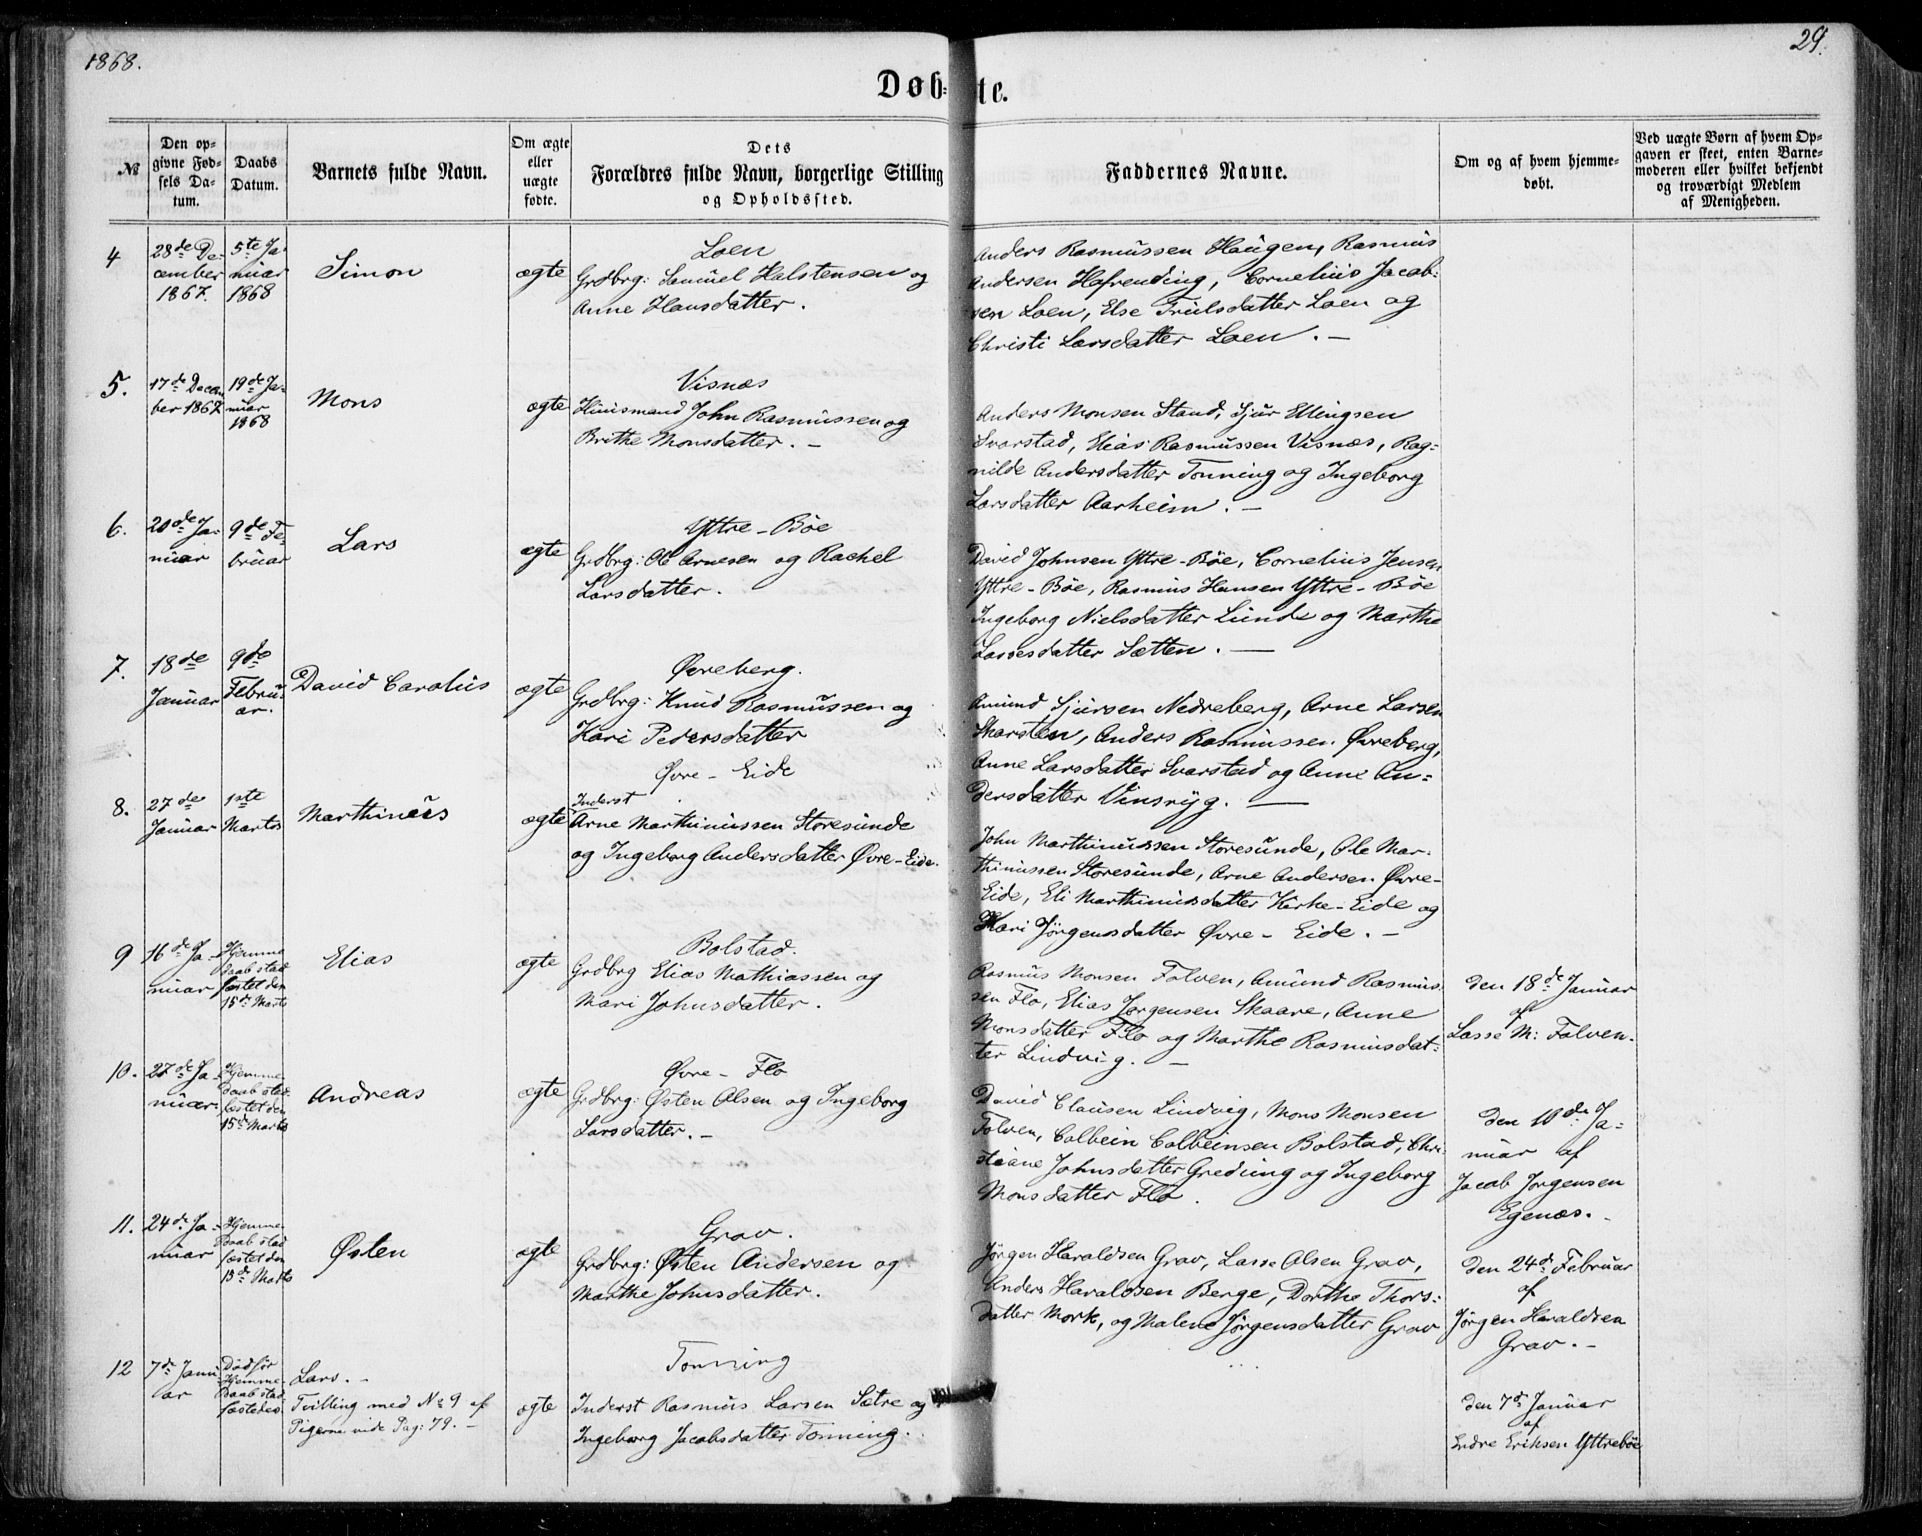 1868.
29.
Døbte.
№
Den op-
givne Fød-
sels Da-
tum.
Daabs
Datum.
Barnets fulde Navn.
Om ægte
eller
uægte
fødte.
Dets
Forældres fulde Navn, borgerlige Stilling
og Opholdssted.
Faddernes Navne.
Om og af hvem hjemme-
døbt.
Ved uægte Børn af hvem Op-
gaven er skeet, enten Barne-
moderen eller hvilket bekjendt
og troværdigt Medlem
af Menigheden.
4
28de De-
cember
1867.
5te Ja-
nuar
1868
Simon
ægte
Loen
Grdbrg: Samuel Halstensen og
Anne Hansdatter.
Anders Rasmussen Haugen, Rasmus
Andersen Hafrending, Cornelius Jacob-
sen Loen, Else Trulsdatter Loen og
Christi Larsdatter Loen. —
5.
17de Decem
ber 1867.
19de Ja-
nuar
1868
Mons
ægte
Visnæs
Huusmand John Rasmussen og
Brithe Monsdatter. —
Anders Monsen Staud, Sjur Ellingsen
Svarstad, Elias Rasmussen Visnæs, Rag-
nilde Andersdatter Tonning og Ingeborg
Larsdatter Aarheim. —
6.
20de Ja-
nuar
9de Fe-
bruar
Lars
ægte
Yttre-Bøe
Grdbrg: Ole Arnesen og Rachel
Larsdatter.
David Johnsen Yttre-Bøe, Cornelius Jensen
Yttre-Bøe, Rasmus Hansen Yttre-Bøe
Ingeborg Nielsdatter Lunde og Marthe
Lassesdatter Sætten. —
7.
18de
Januar
9de
Febru-
ar.
David Carolus
ægte
Øvreberg.
Grdbrg: Knud Rasmussen og
Kari Pedersdatter
Amund Sjursen Nedreberg, Arne Larsen
Skarsten, Anders Rasmussen Øvreberg,
Anne Larsdatter Svarstad og Anne An-
dersdatter Vinsryg. —
8.
27de
Januar
1ste
Marts
Marthinus
ægte
Øvre-Eide
Inderst
Arne Marthinussen Storesunde
og Ingeborg Andersdatter Øvre-Eide.
John Marthinussen Storesunde, Ole Mar-
thinussen Storesunde, Arne Andersen Øvre-
Eide, Eli Marthinusdatter Kirke-Eide og
Kari Jörgensdatter Øvre-Eide. —
9
16de Ja-
nuar
Hjemme
daab stad
fæstet den
15de Marts
Elias
ægte
Bolstad.
Grdbrg Elias Mathiassen og
Mari Johnsdatter.
Rasmus Monsen Folven, Amund Rasmus
sen Flo, Elias Jørgensen Skaare, Anne
Monsdatter Flo og Marthe Rasmusdat-
ter Lindvig. —
den 18de Januar
af
Lasse M: Folven.
10.
27de Ja-
nuar
Hjemme
daab stad
fæstet den
15de Marts
Andreas
ægte
Øvre-Flo
Grdbrg: Østen Olsen og Ingeborg
Larsdatter. —
David Clausen Lindvig, Mons Monsen
Folven, Colbein Colbeinsen Bolstad, Chri-
stiane Johnsdatter Greduing og Ingeborg
Monsdatter Flo.
den 10de Ja-
nuar af
Jacob Jørgensen
Egenæs. -
11.
24de Ja-
nuar
Hjemme
daab stad
fæstet den
15de Marts
Østen
ægte
Grav.
Grdbrg: Østen Andersen og
Marthe Johnsdatter.
Jørgen Haraldsen Grav, Lasse Olsen Grav,
Anders Haraldsen Berge, Dorthe Thors-
datter Mork, og Malene Jørgensdatter Grav
den 24de Februar
af
Jørgen Haraldsen
Grav. -
12
7de Janu
ar
Død før
Hjemme-
Daab stad
fæstedes
Lars. -
Tvilling med No 9 af
Pigerne vide Pag: 79. —
ægte
Tonning
Inderst Rasmus Larsen Sætre og
Ingeborg Jacobsdatter Tonning.
den 7de Januar
af
Endre Eriksen Yttrebøe